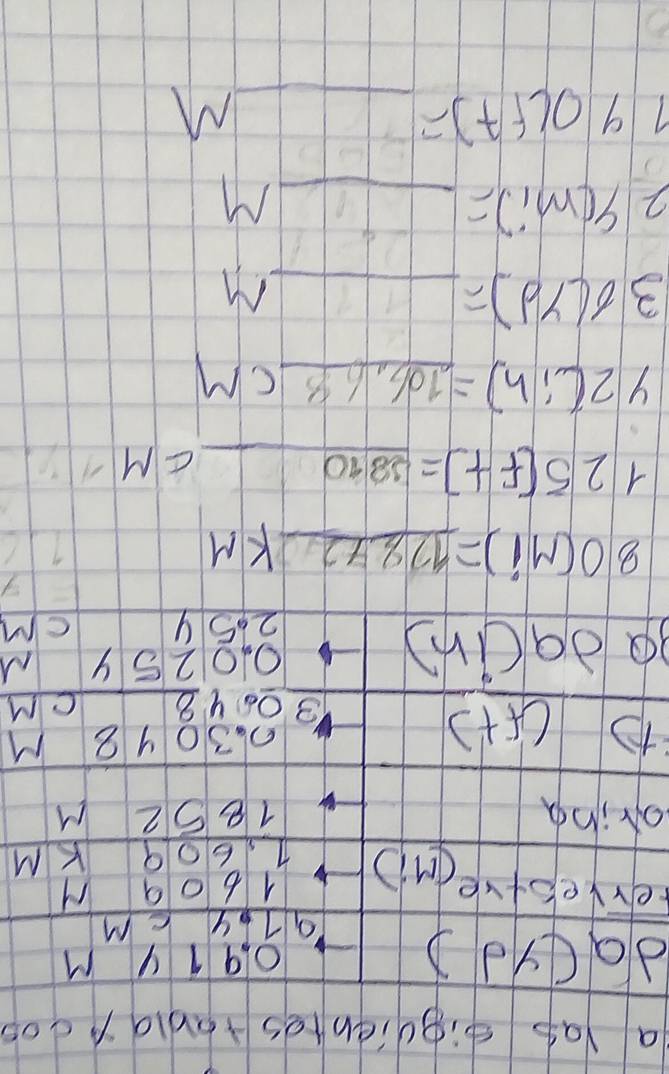 a las siguientes tabla y cos
da (yd) → 0.914 M
91.4 cM
terrestre (Mi) → 1609 M
1.609 KM
orina → 1852 M
(ft) → 0.3048 M
30.48 CM
da (in) → 0.0254 M
2.54 CM
80(Mi)= KM
125(ft)=3810 cM
42(in)=106.68 CM
36(yd)= M
24(mi)= M
190(ft)= M